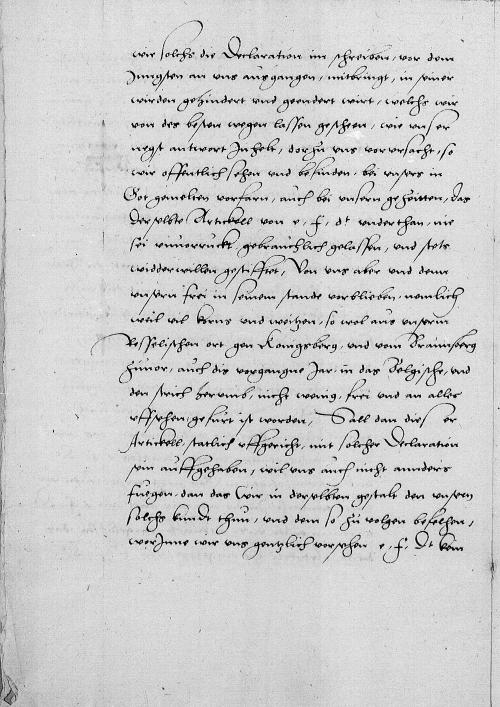 wie solchs die Declaration im schreiben, vor dem
Jungsten an uns ausgangen, mitbringt, in seiner
wirden gehindert und geendert wirt, welchs wir
von des besten wegen lassen gescheen, wie unser
negst antwort Inhelt, dorzu uns vorursacht, so
wir offentlich sehen und befinden, bei unsers in
Got gemelten vorfarn, auch bei unsern gezeitten, das
derselbte Artickell von e. f. dt underthan, nie
sei unuorruckt, gebrauchlich gelassen, und stets
widderwillen gestifftet, Von uns aber und denn
unsern frei in seinem stande vorblieben, nemlich
weil vil korns und weitzen, so wol aus unserm
Resselischen ort gen Konigsberg, und vom Braunsberg
zuuor, auch dis vorgangne Jar, in das Belgische, und
den strich herumb, nicht wenig, frei und an alles
uffsehen, gefurt ist worden, Sall dan dieser
Artickell, statlich uffgericht, mit solcher Declaration
sein auffgehaben, wil uns auch nicht annders
fuegen, dan das wir in derselbten gestalt den unsern
solchs kundt thun, und dem so zu volgen befelhen,
worInne wir uns gentzlich vorsehen e. f. dt kein